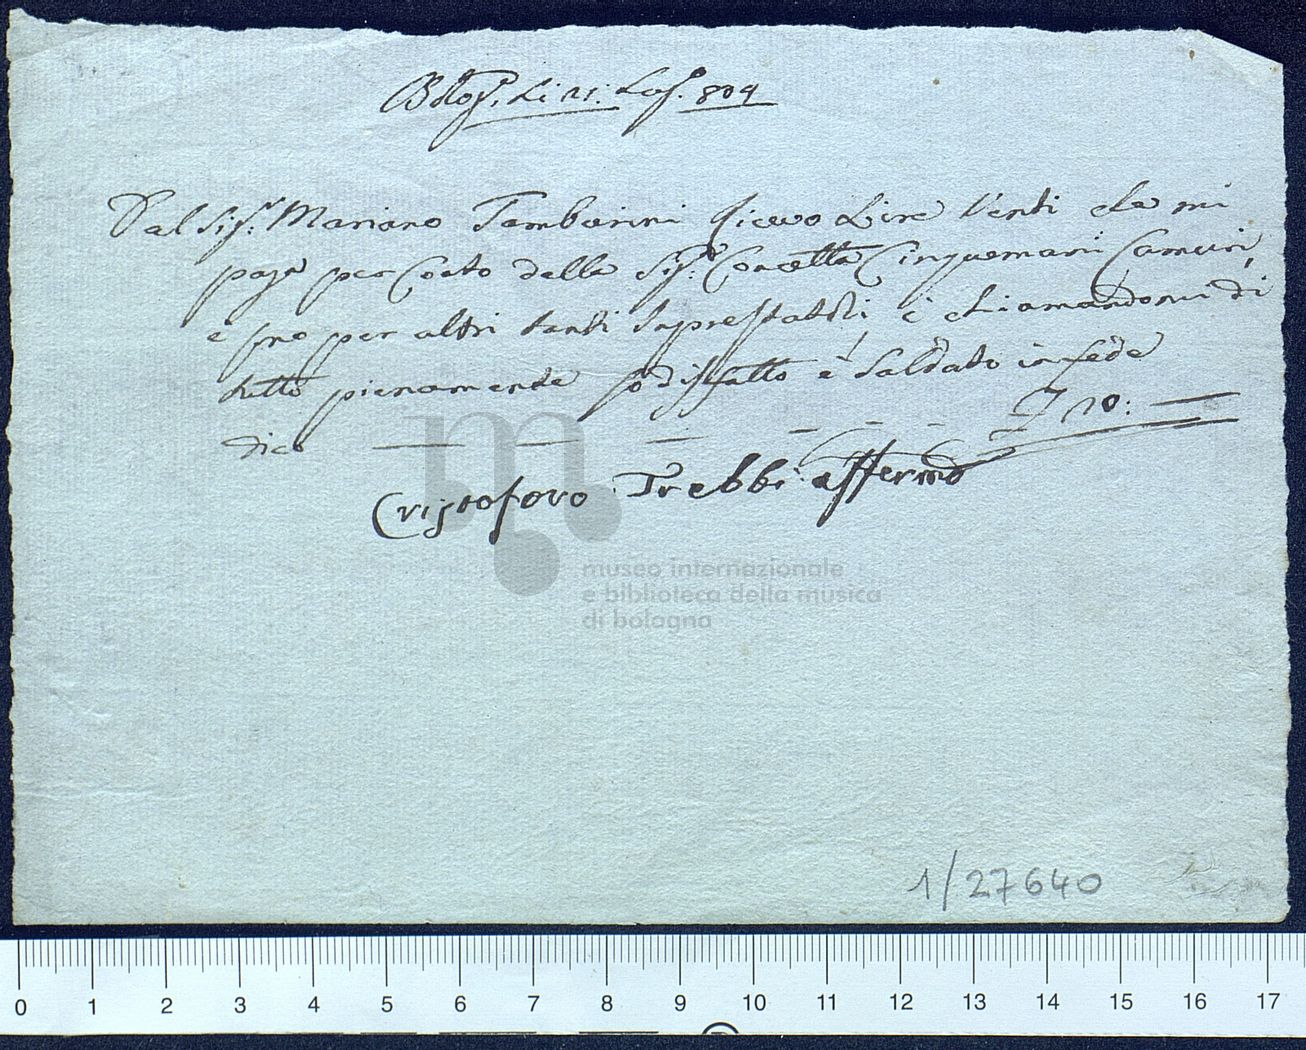 Bologª. Li 21: Lug°. 804
Dal Sigr: Mariano Tamburini Ricevo Lire Venti che mi
paga per Conto della Sigª: Concetta Cinquemani Camuri,
e sno per altri tanti Inprestatoli, è chiamandomi di
tutto pienamente sodisfatto è Saldato in fede
dico — — — — — — — £ 20: —
Cristoforo Trebbi: affermo
museo internazionale
e biblioteca della musica
di bologna
1/27640
0 1 2 3 4 5 6 7 8 9 10 11 12 13 14 15 16 17